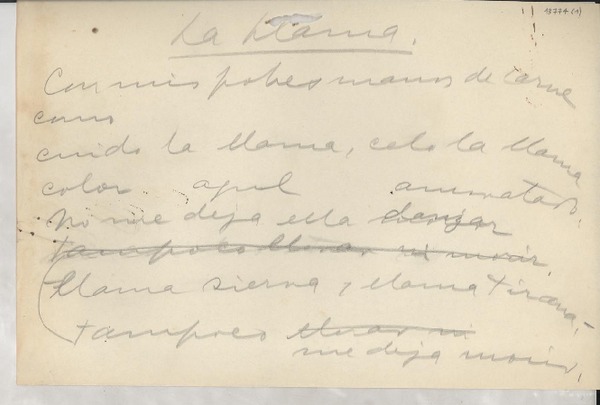 13774(1)
La Llama.
Con mis pobres manos de carne
como
cuido la llama, celo la llama
color azul amoratado.
No me deja ella danzar
tampoco llorar ni morir.
Llama sierva y llama tirana,
tampoco llorar ni
me deja morir.